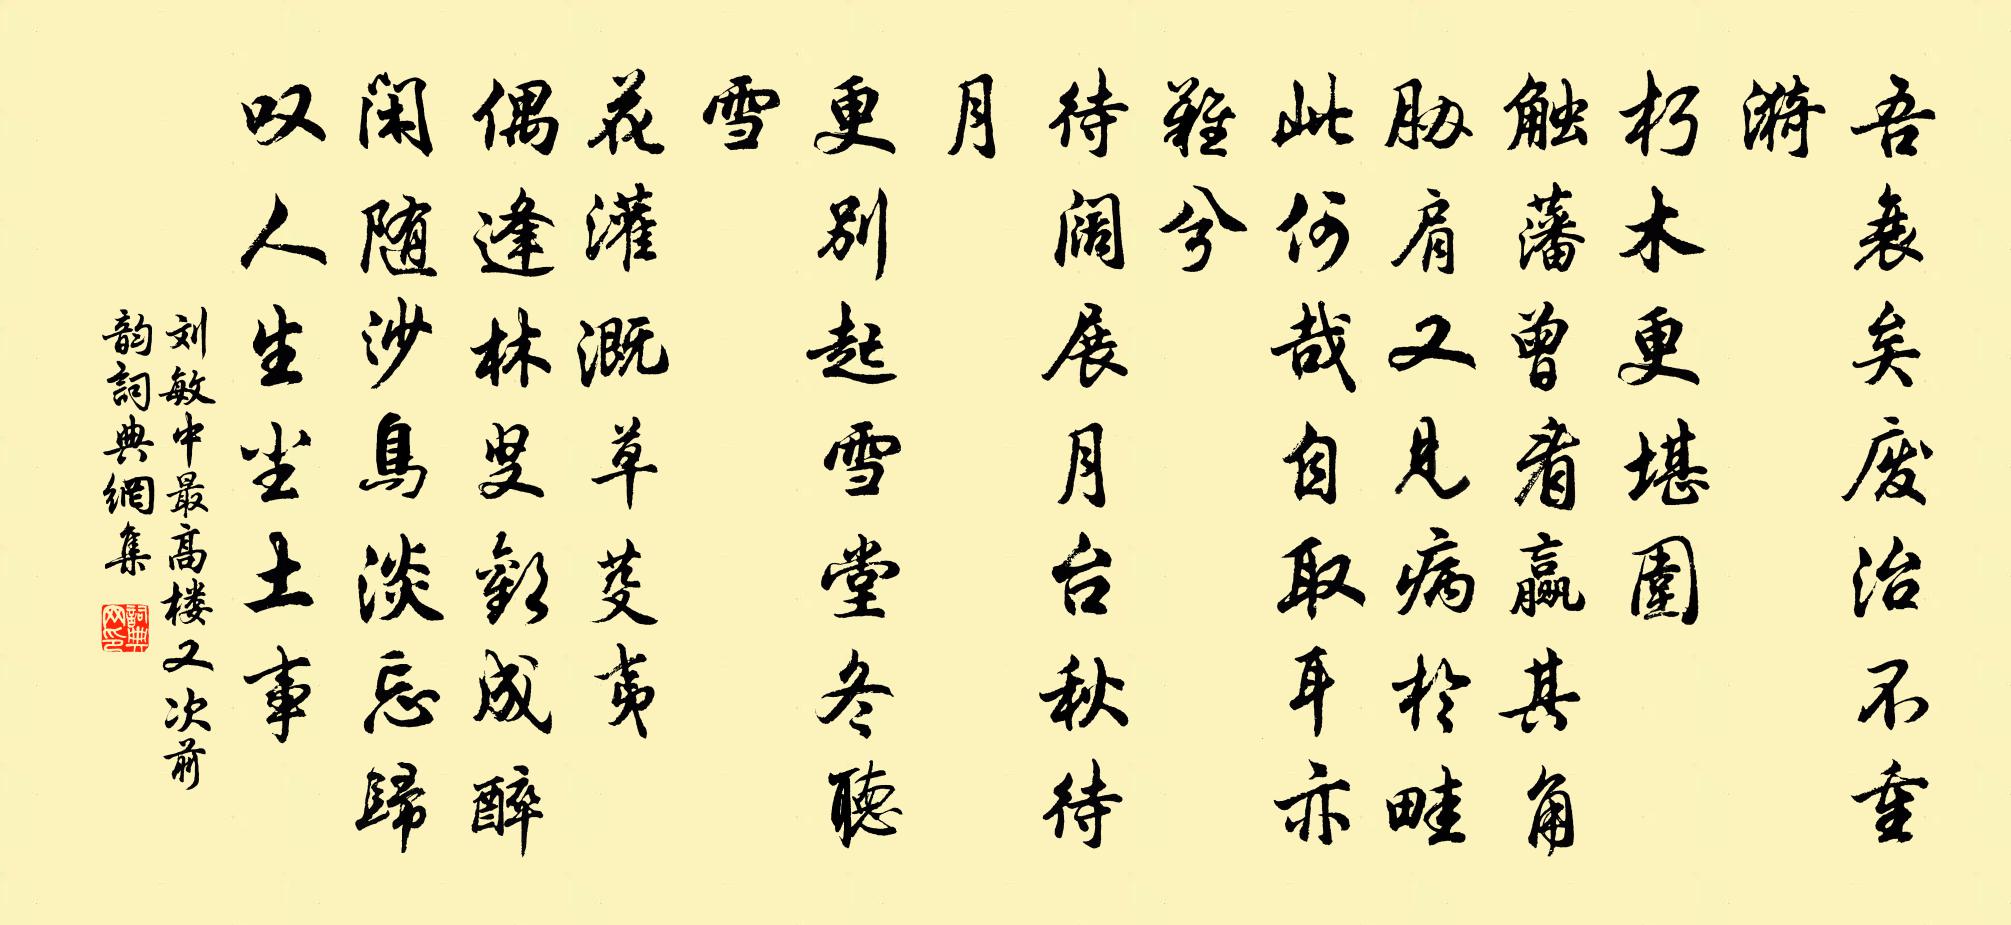 吾衰矣废治不重
漪
朽木更堪圍
触藩曾看羸其角
胁肩又見病於畦
此何哉自取耳亦
難兮
待阔展月台秋待
月
更别起雪堂冬聽
雪
花灌溉草芟夷
偶逢林叟歡成醉
闲随沙鳥淡忘歸
叹人生尘土事
刘敏中最高楼又次前
韵詞典網集
詞典网印